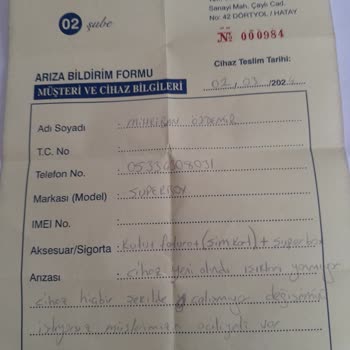 02 şube
Sanayi Mah. Çaylı Cad.
No: 42 DÖRTYOL / HATAY
№ 000984
ARIZA BİLDİRİM FORMU
Cihaz Teslim Tarihi:
MÜŞTERİ VE CİHAZ BİLGİLERİ
02, 03 /202
Adı Soyadı :
T.C. No :
Telefon No. :
Markası (Model) : SUPERBOX
IMEI No. :
Aksesuar/Sigorta : Kutu fatura (simkart) + superbox
Arızası : cihaz yeni alındı ışıkları yanmıyor
cihaz hiçbir şekilde çalışmıyor değişimini
istiyoruz müşterimizin aciliyeti var